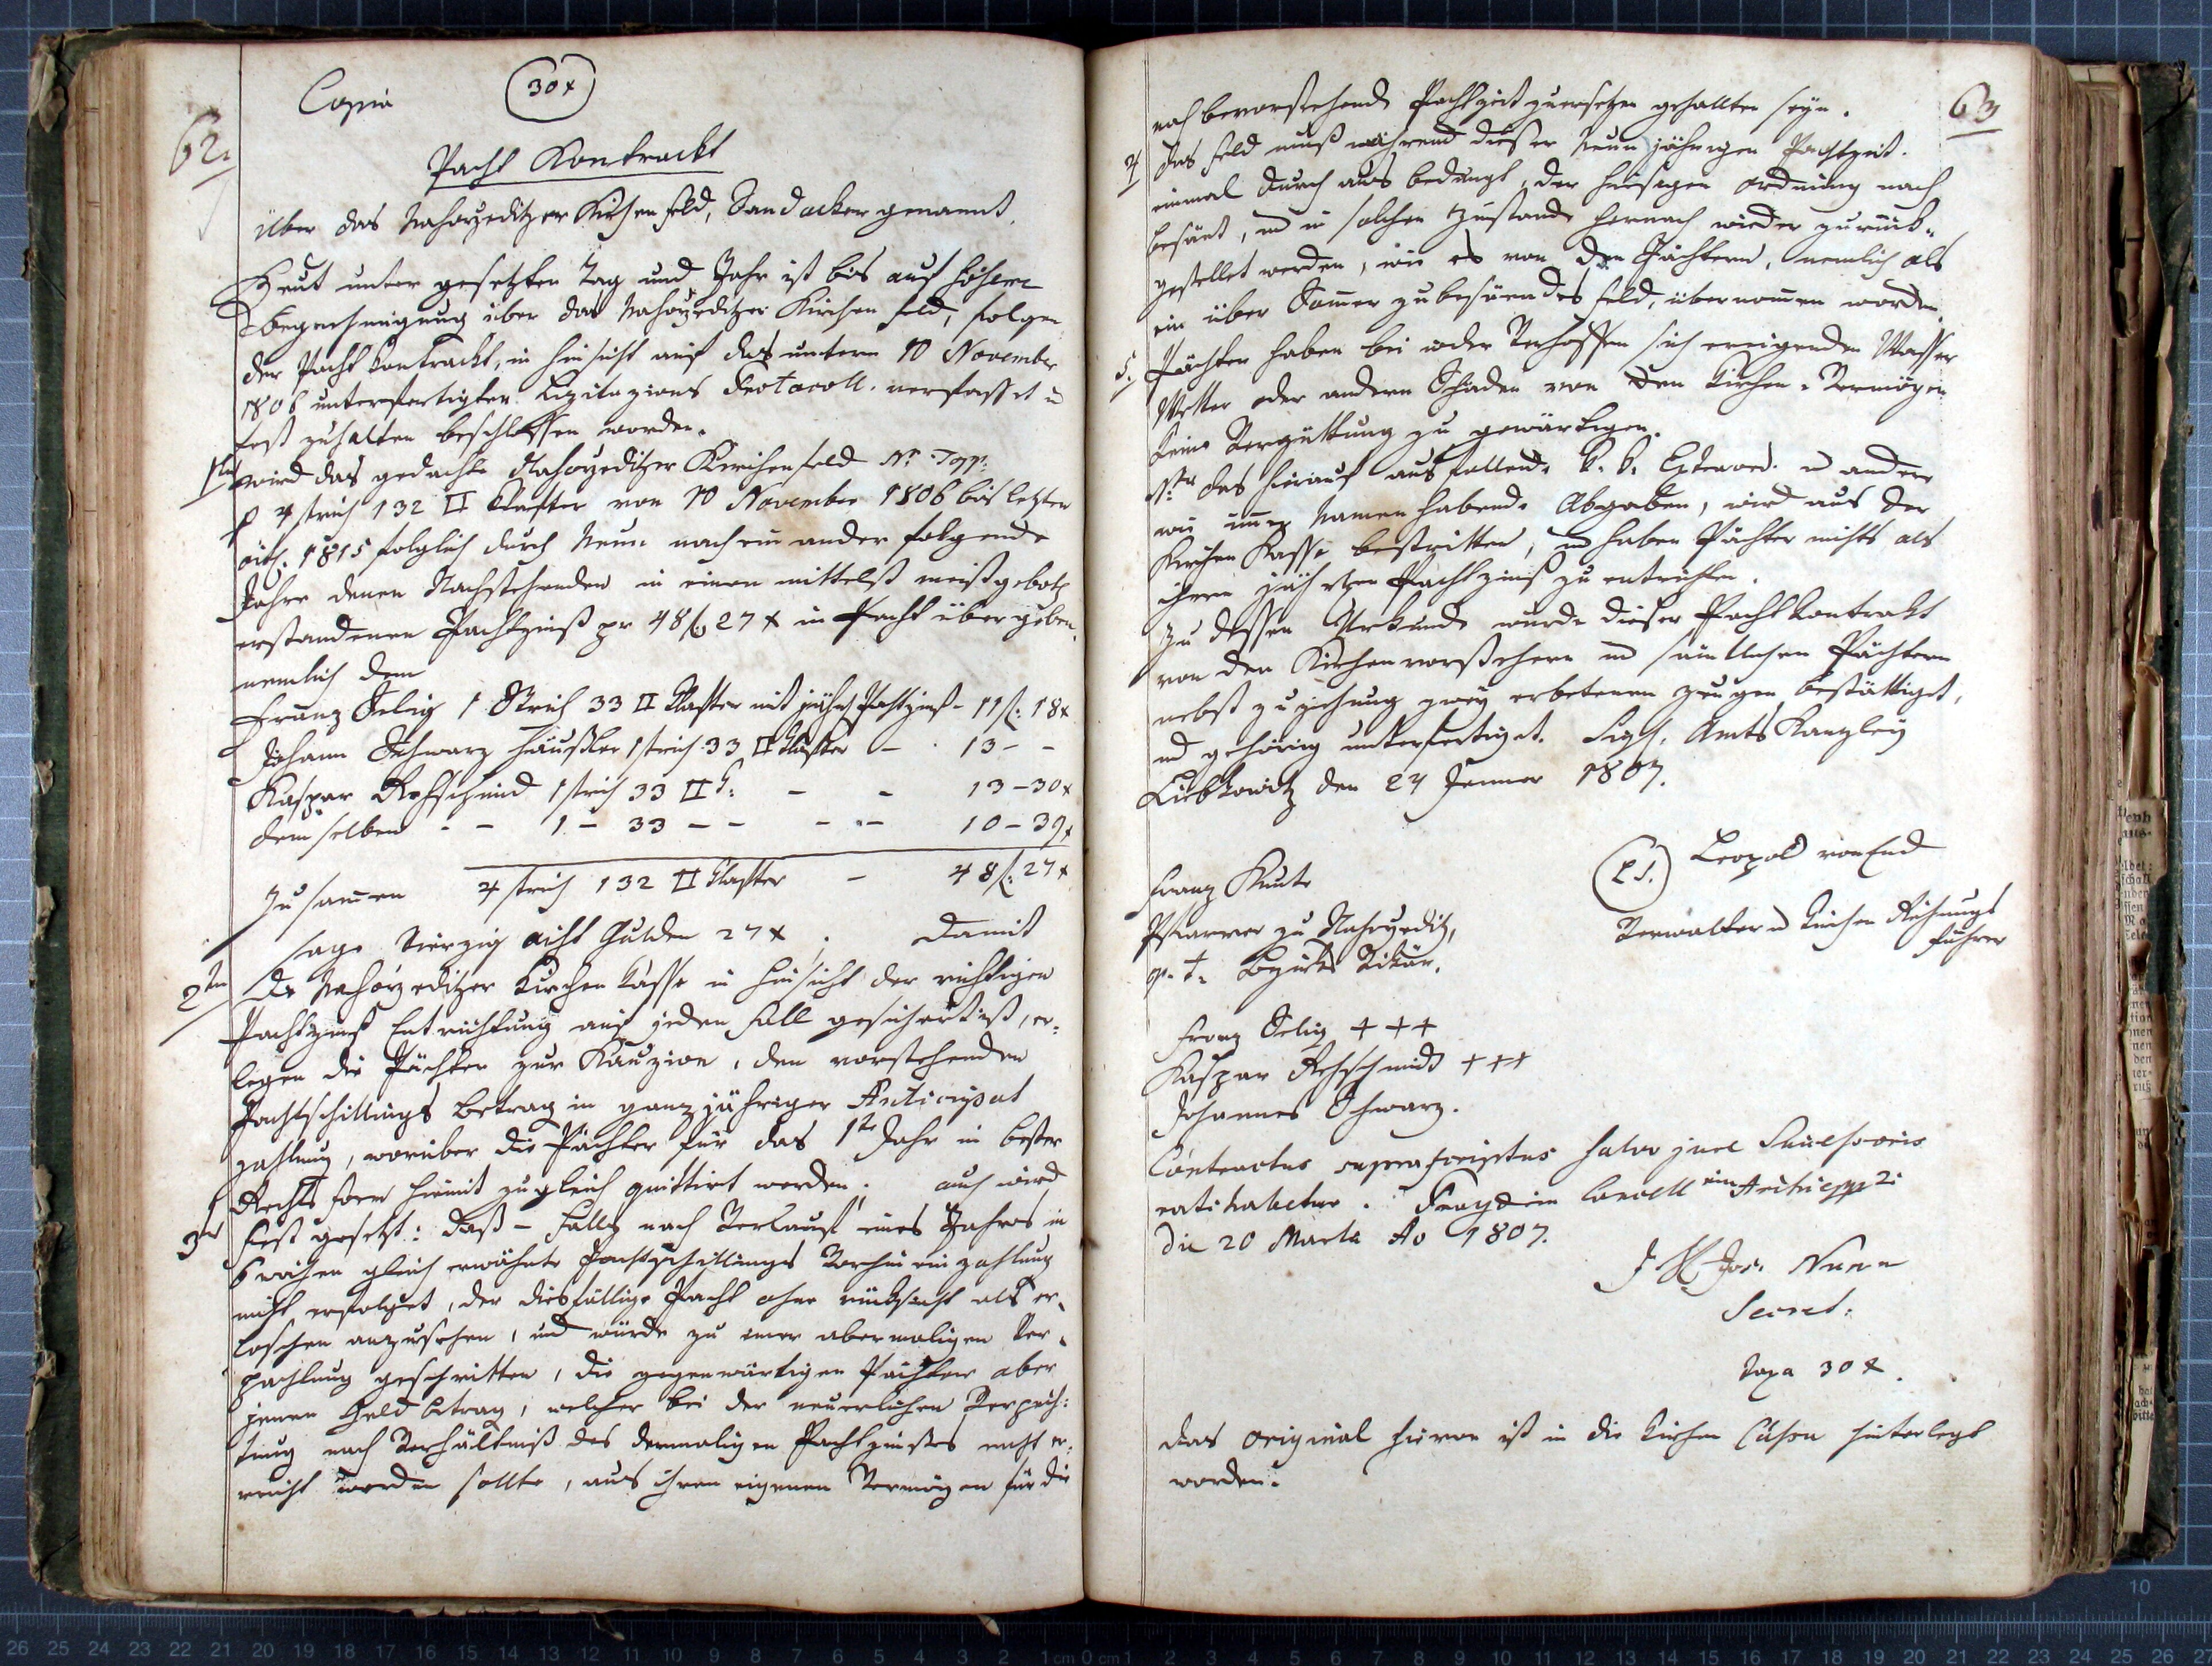 62.
Copia
30 x
Pacht Kontrackt
über das Nahorzeditzer Kirchen feld, Sandacker genannt.
Heut unter gesetzten Tag und Jahr ist bis auf höhere
Begnehmigung über das Nahorzeditzer Kirchen feld, folgen
der Pacht Kontrackt, in hinsicht auf das untern 10 November
1806 unterfertigten Lizitazions Protocoll. verfasset u
fest zuhalten beschlossen worden.
1tens wird das gedachte Nahorzeditzer Kirchenfeld Nr. Top.
p 4 strich 132 □ Klafter von 10 November 1806 bis letzten
8ber. 1815 folglich durch Neun nach ein ander folgende
Jahre denen Nachstehenden in einen mittelst meistgeboth
erstandenen Pachtzinß pr 48 f 27 x in Pacht übergeben.
nemlich dem
Franz Selig 1 Strich 33 □ Klafter mit jährl Pachtzinß - 11 f: 18 x
Johann Schwarz Häusler 1 strich 33 □ Klafter - . 13 - -
Kaspar Rehschmid 1 strich 33 □ K: - - 13 - 30 x
demselben - - 1 - 33 - - - - 10 - 39 x
Zusammen 4 strich 132 □ Klafter - 48 f: 27 x
sage Vierzig acht Gulden 27 x. Damit
2ten die Nahorzeditzer Kirchen Kasse in hinsicht der richtigen
Pachtzinß Entrichtung auf jeden fall gesichert ist, er-
legen die Pächter zur Kauzion, den vorstehenden
Pachtschillings betrag in ganzjähriger Anticipat
zahlung, worüber die Pächter für das 1te Jahr in bester
Rechts form hiemit zugleich quittirt werden. auch wird
3tens fest gesetzt: daß - falls nach Verlauf eines Jahres in
6 wochen gleich erwähnte Pachtschillings Vorhinein zahlung
nicht erfolget, der diesfällige Pacht ohne rücksicht als er-
loschen anzusehen, und würde zu einer abermaligen Ver-
pachtung geschritten, die gegenwärtigen Pächter aber
jenen Geld betrag, welcher bei der neuerlichen Verpach:
tung nach Verhältniß des dermaligen Pachtzinßes nicht er:
reicht werden sollte, aus ihren eigenen Vermögen für die
63
noch bevorstehende Pachtzeit zuersetzen gehallten seyn.
4 das feld muß während dieser Neun jährigen Pachtzeit.
einmal durch aus bedungt, der hiesigen ordnung nach
besäet, u in solchen zustande hernach wieder zurück-
gestellet werden, wie es von den Pächtern, nemlich als
ein über Sommer zubesäendes feld, übernommen worden.
5. Pächter haben bei wider Verhoffen sich ereigenden Wasser
Wetter oder andern Schaden von den Kirchen-Vermögen
keine Vergüttung zu gewärtigen.
das hierauf ausfallende k. k. Extraord. u andere
wie immer Namen habende Abgaben, wird aus der
Kirchen Kasse bestritten, u haben Pächter nichts als
ihren jährlen Pachtzinß zu entrichten.
Zu dessen Urkund wurde dieser Pacht Kontrakt
von den Kirchenvorstehern u sämtlichen Pächtern
nebst zuziehung zwey erbetenen zeugen bestättiget,
u gehörig unterfertiget. Sigl. Amts Kanzley
Liebkowitz den 24 Jenner 1807.
(L S.) Leopold von End
Verwalter u Kirchen Rechnungs
führer
Franz Kuntz
Pfarrer zu Nahorzeditz,
p. t. Bezirks Vikär.
Franz Selig + + +
Kaspar Rehschmidt + + +
Johannes Schwarz.
Contractus suprascriptus salvo jure
ratihabetur.
die 20 Martii Ao 1807.
Secret:
Taxa 30 x.
das Original hievon ist in die Kirchen Cassa hinterlegt
worden.